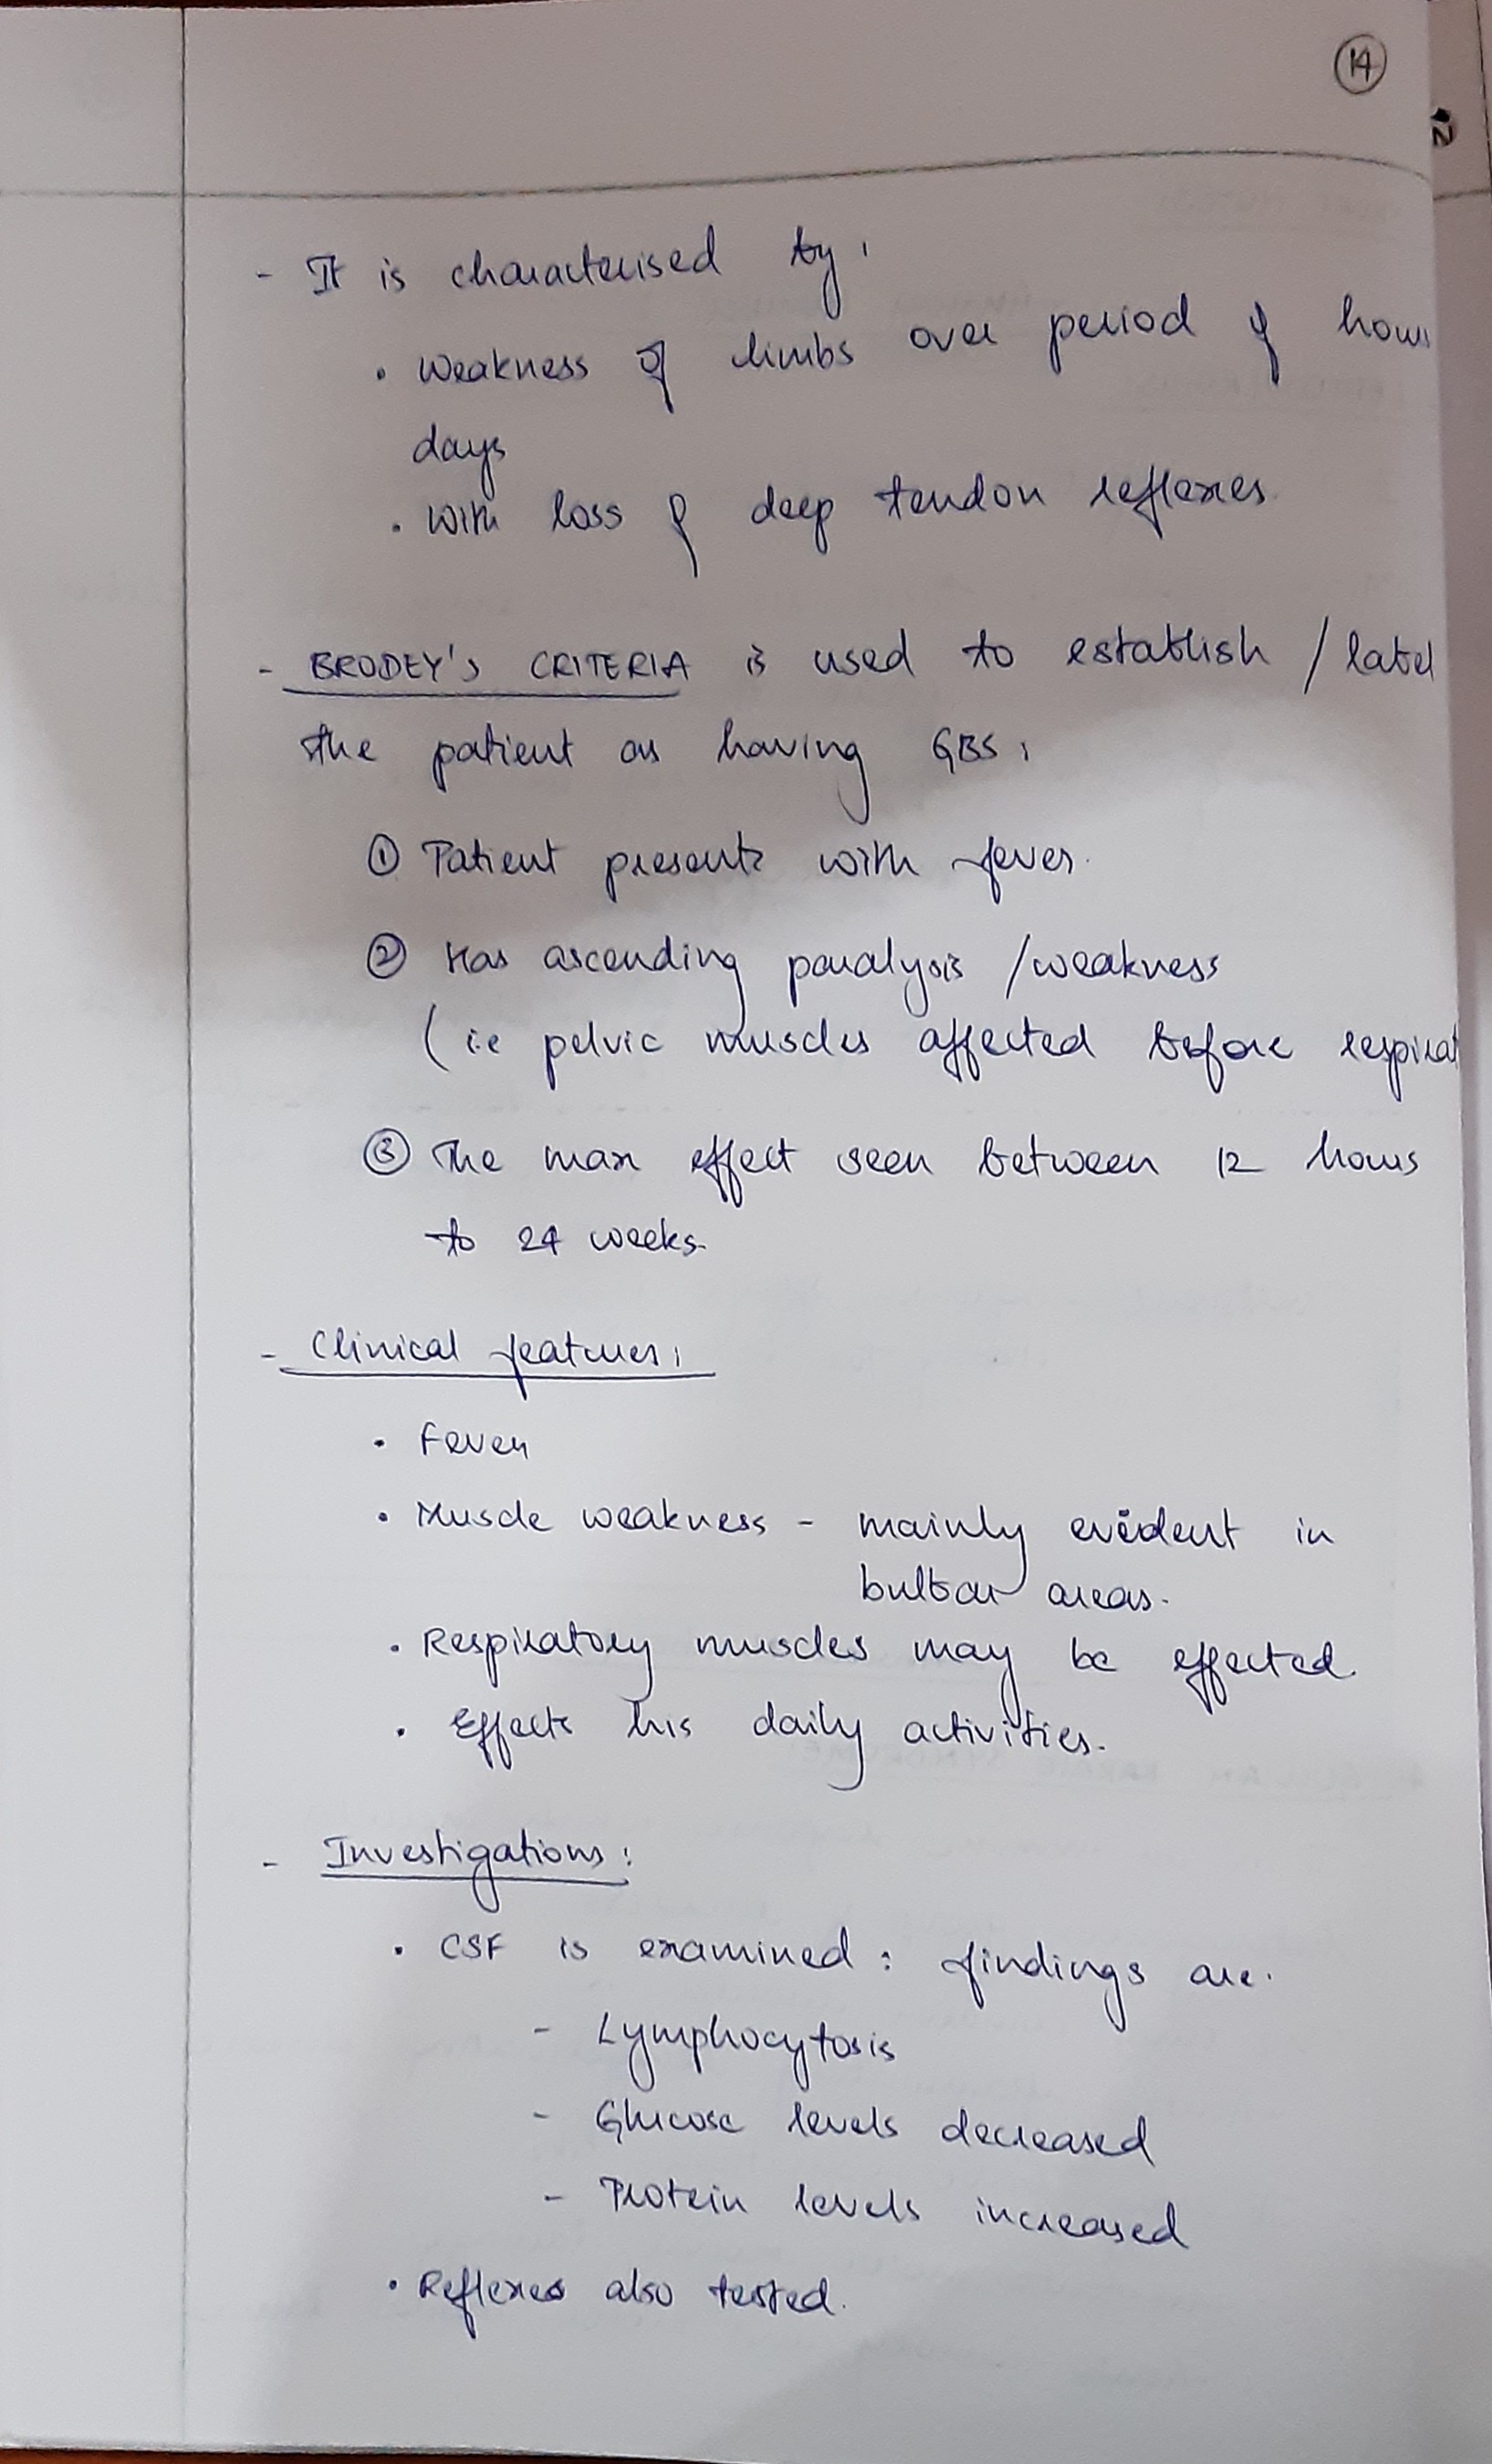 14
12
- It is characterised by:
• Weakness of limbs over period of hours
days
• With loss of deep tendon reflexes.
- BRODEY'S CRITERIA is used to establish / label
the patient as having GBS:
① Patient presents with fever.
② Has ascending paralysis / weakness
(i.e pelvic muscles affected before respirat
③ The max effect seen between 12 hours
to 24 weeks.
- Clinical features:
• Fever
• Muscle weakness - mainly evident in
bulbar areas.
• Respiratory muscles may be effected.
• Effects his daily activities.
- Investigations:
• CSF is examined: findings are.
- Lymphocytosis
- Glucose levels decreased
- Protein levels increased
• Reflexes also tested.